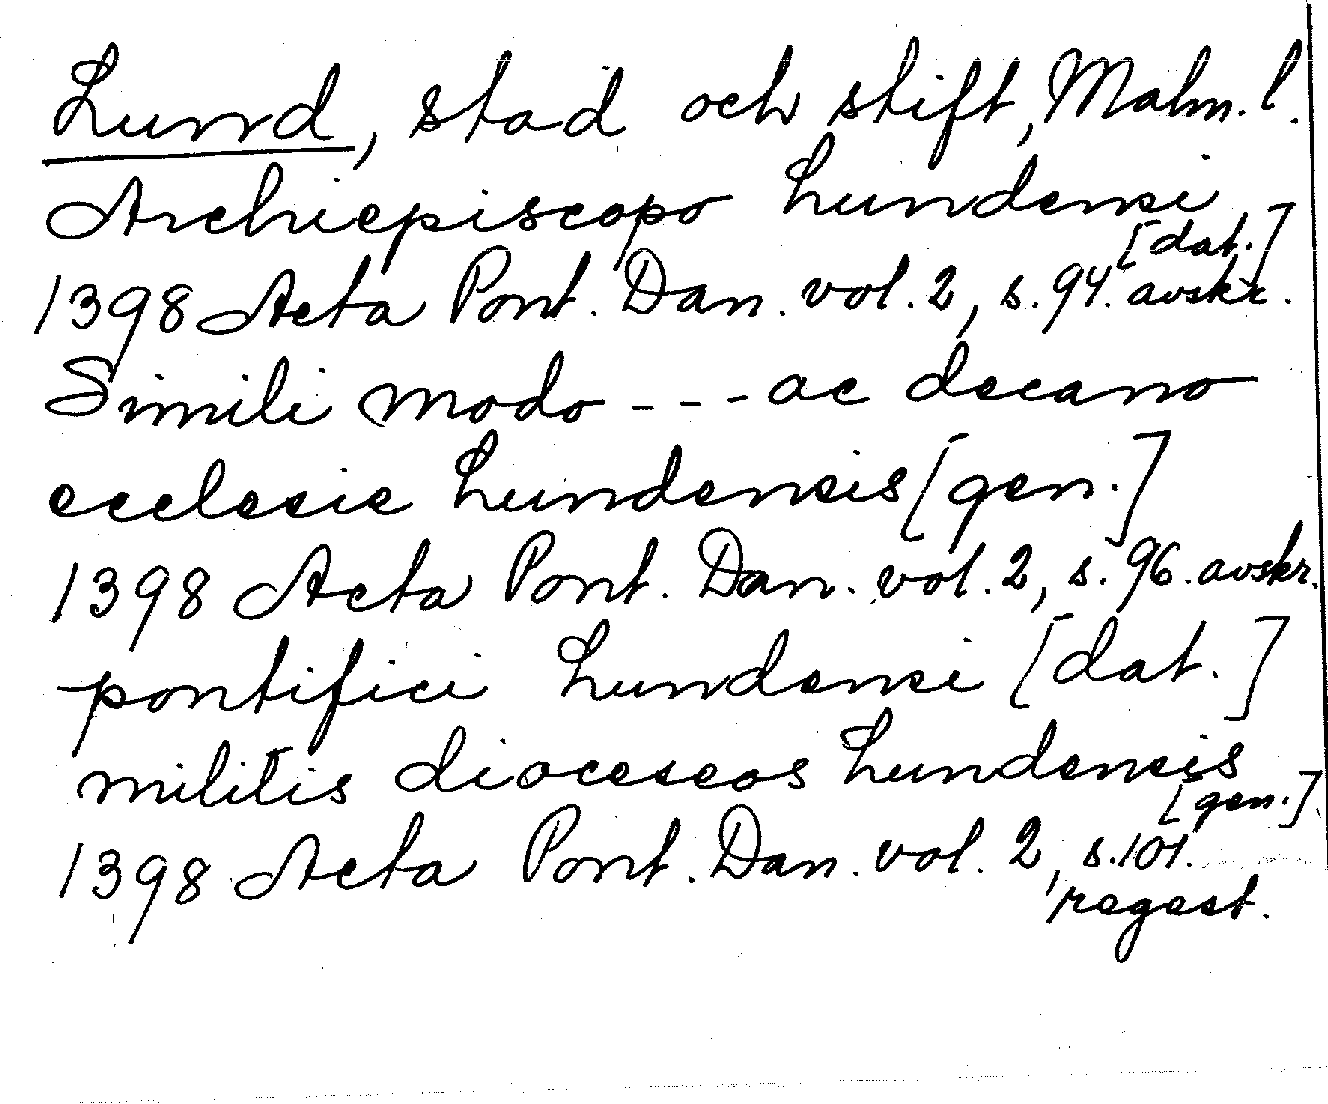 Lund, stad och stift, Malm. l.
Archiepiscopo Lundensi
[dat.]
1398 Acta Pont. Dan. vol. 2, s. 94. avskr.
Simili modo --- ac decano
ecclesie Lundensis [gen.]
1398 Acta Pont. Dan. vol. 2, s. 96. avskr.
pontifici Lundensi [dat.]
militis dioceseos Lundensis
[gen.]
1398 Acta Pont. Dan. vol. 2, s. 101.
regest.